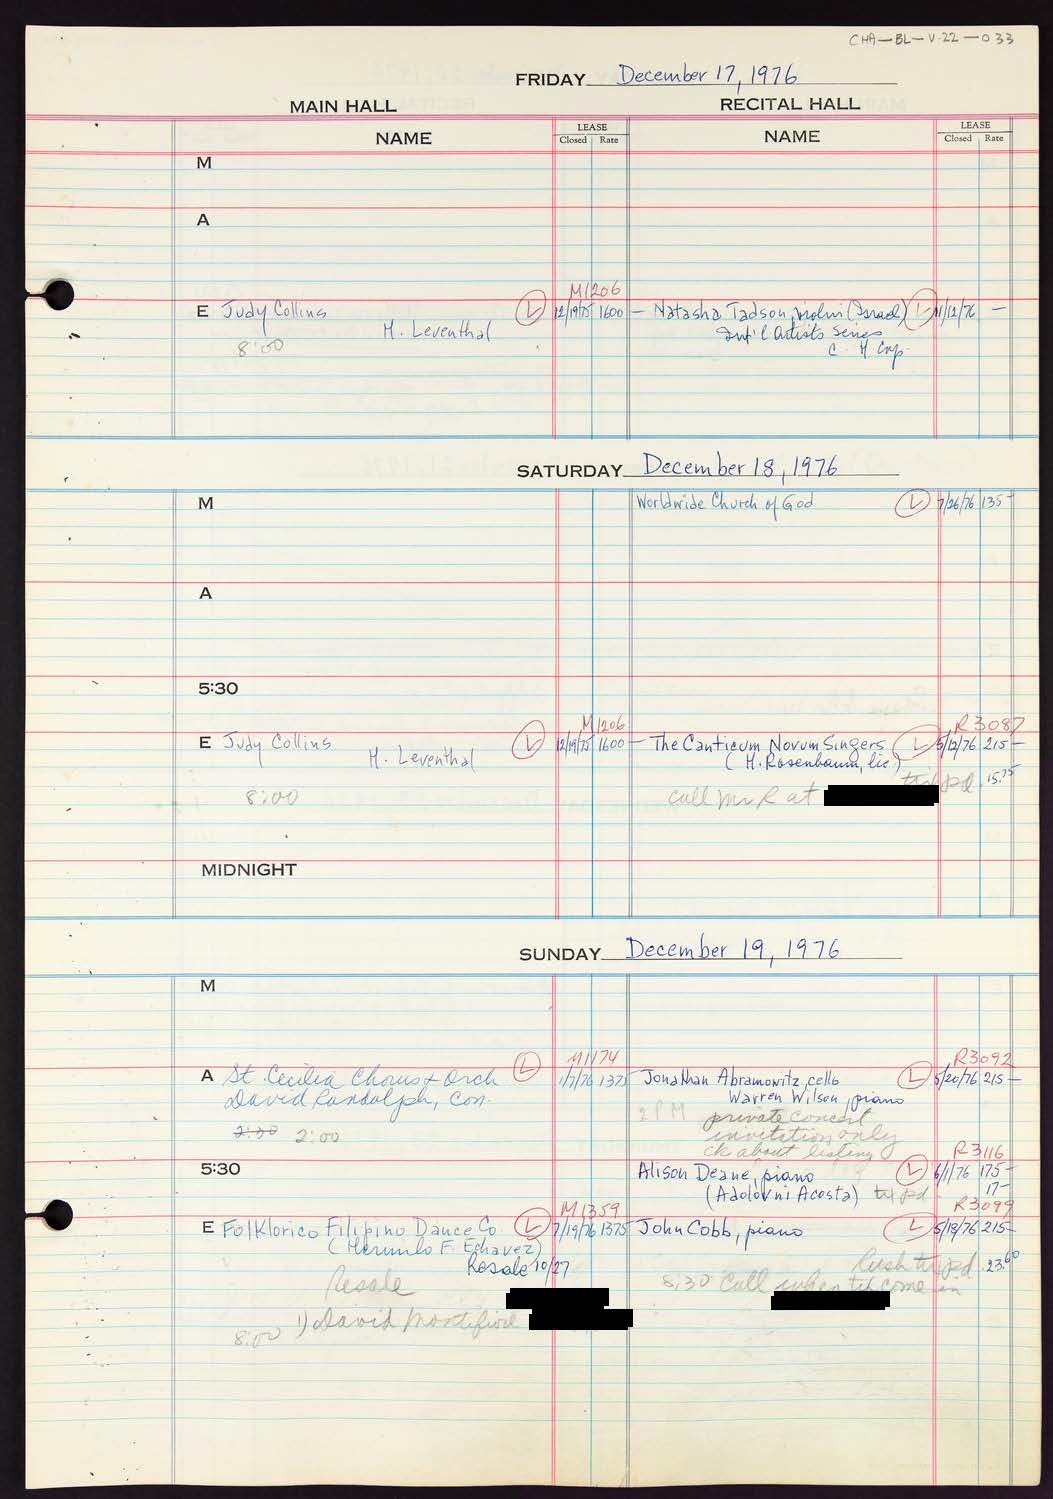 CHA-BL-V.22-033
FRIDAY December 17, 1976
MAIN HALL
RECITAL HALL
NAME
LEASE
Closed Rate
NAME
LEASE
Closed Rate
M
A
M1206
E Judy Collins L 12/19/75 1600 —
H. Leventhal
8:00
Natasha Tadson, violin (Israel) L 11/12/76 —
Int'l Artists Series
C. H Corp.
SATURDAY December 18, 1976
M
Worldwide Church of God L 7/26/76 135 -
A
5:30
M1206
E Judy Collins L 12/19/75 1600 —
H. Leventhal
8:00
R3087
The Canticum Novum Singers L 5/12/76 215 —
(H. Rosenbaum, lic)
tkt pd. 15.75
call Mr R at
MIDNIGHT
SUNDAY December 19, 1976
M
M1174
A St. Cecilia Chorus & Orch L 1/7/76 1375
David Randolph, Con.
2:30 2:00
R3092
Jonathan Abramowitz, cello L 5/20/76 215 —
Warren Wilson, piano
2 PM private concert
invitation only
ck about listing
5:30
R3116
Alison Deane, piano L 6/1/76 175 -
(Adolovni Acosta) tkt pd. 17 -
M1359
E Folklorico Filipino Dance Co. L 7/19/76 1375
(Herminlo F. Echavez)
Resale 10/27
Resale
1) David Montifiore
8:00
R3099
John Cobb, piano L 5/18/76 215 -
Rush tkt pd. 23.60
8:30 Call when tkt come in